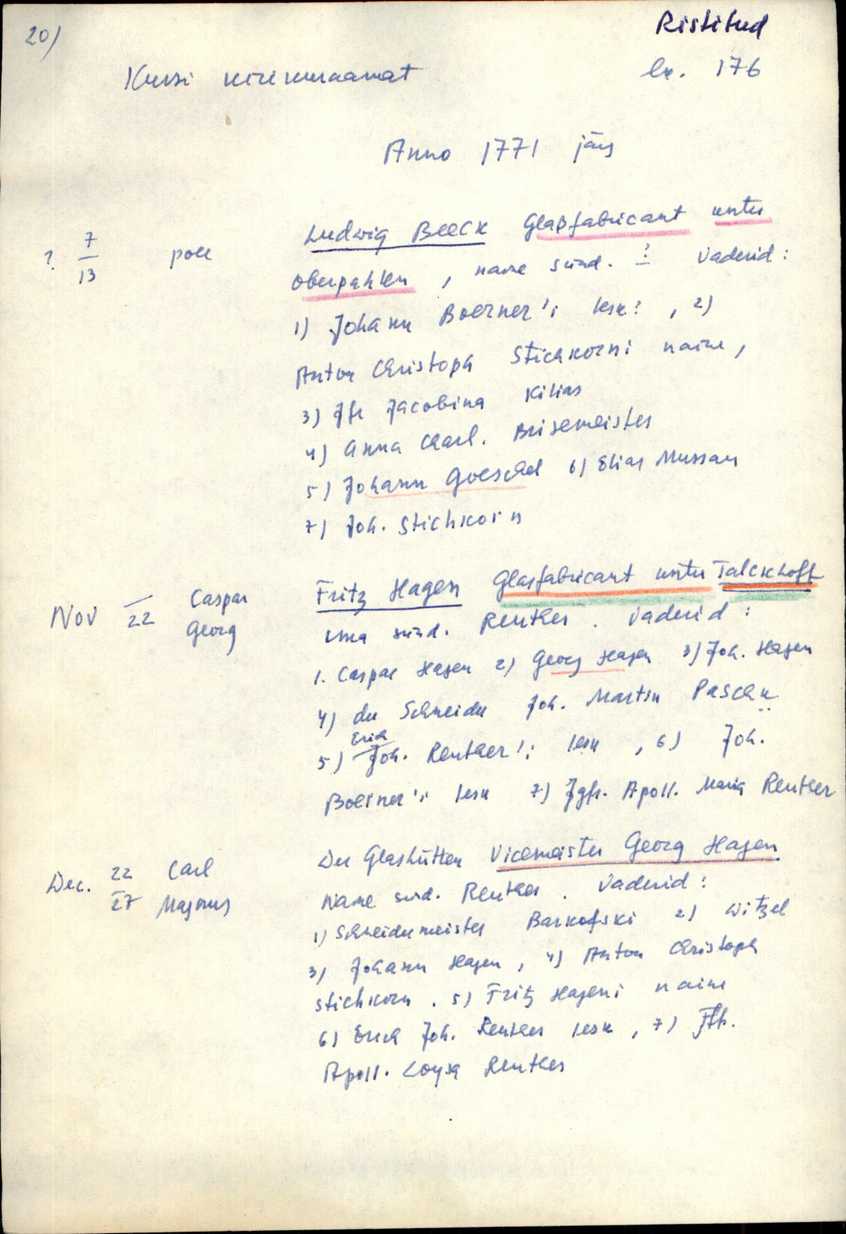 20)
Ristitud
Kursi kirikuraamat
lk. 176
Anno 1771 järg
? 7/13 poeg Ludwig Beeck Glaßfabricant unter
Oberpahlen, naine sünd. ? Vaderid:
1) Johann Boerner'i lesk?, 2)
Anton Christoph Stichkorni naine,
3) Jfr Jacobina Kilias
4) Anna Charl. Brisemeister
5) Johann Goeschel 6) Elias Mussau
7) Joh. Stichkorn
Nov 22 Caspar Georg Fritz Hagen Glasfabricant unter Talckhoff
sünd. Reutker. Vaderid:
1. Caspar Hagen 2) Georg Hagen 3) Joh. Hagen
4) der Schneider Joh. Martin Paschu
5) Erich Joh. Reutker'i lesk, 6) Joh.
Boerner'i lesk 7) Jgfr. Apoll. Maria Reutker
Dec. 22/27 Carl Magnus Der Glashütten Vicemeister Georg Hagen
Naine sünd. Reutker. Vaderid:
1) Schneidermeister Barkofski 2) Witzel
3) Johann Hagen, 4) Anton Christoph
Stichkorn. 5) Fritz Hageni naine
6) Erich Joh. Reutker lesk, 7) Jfr.
Apoll. Loysa Reutker